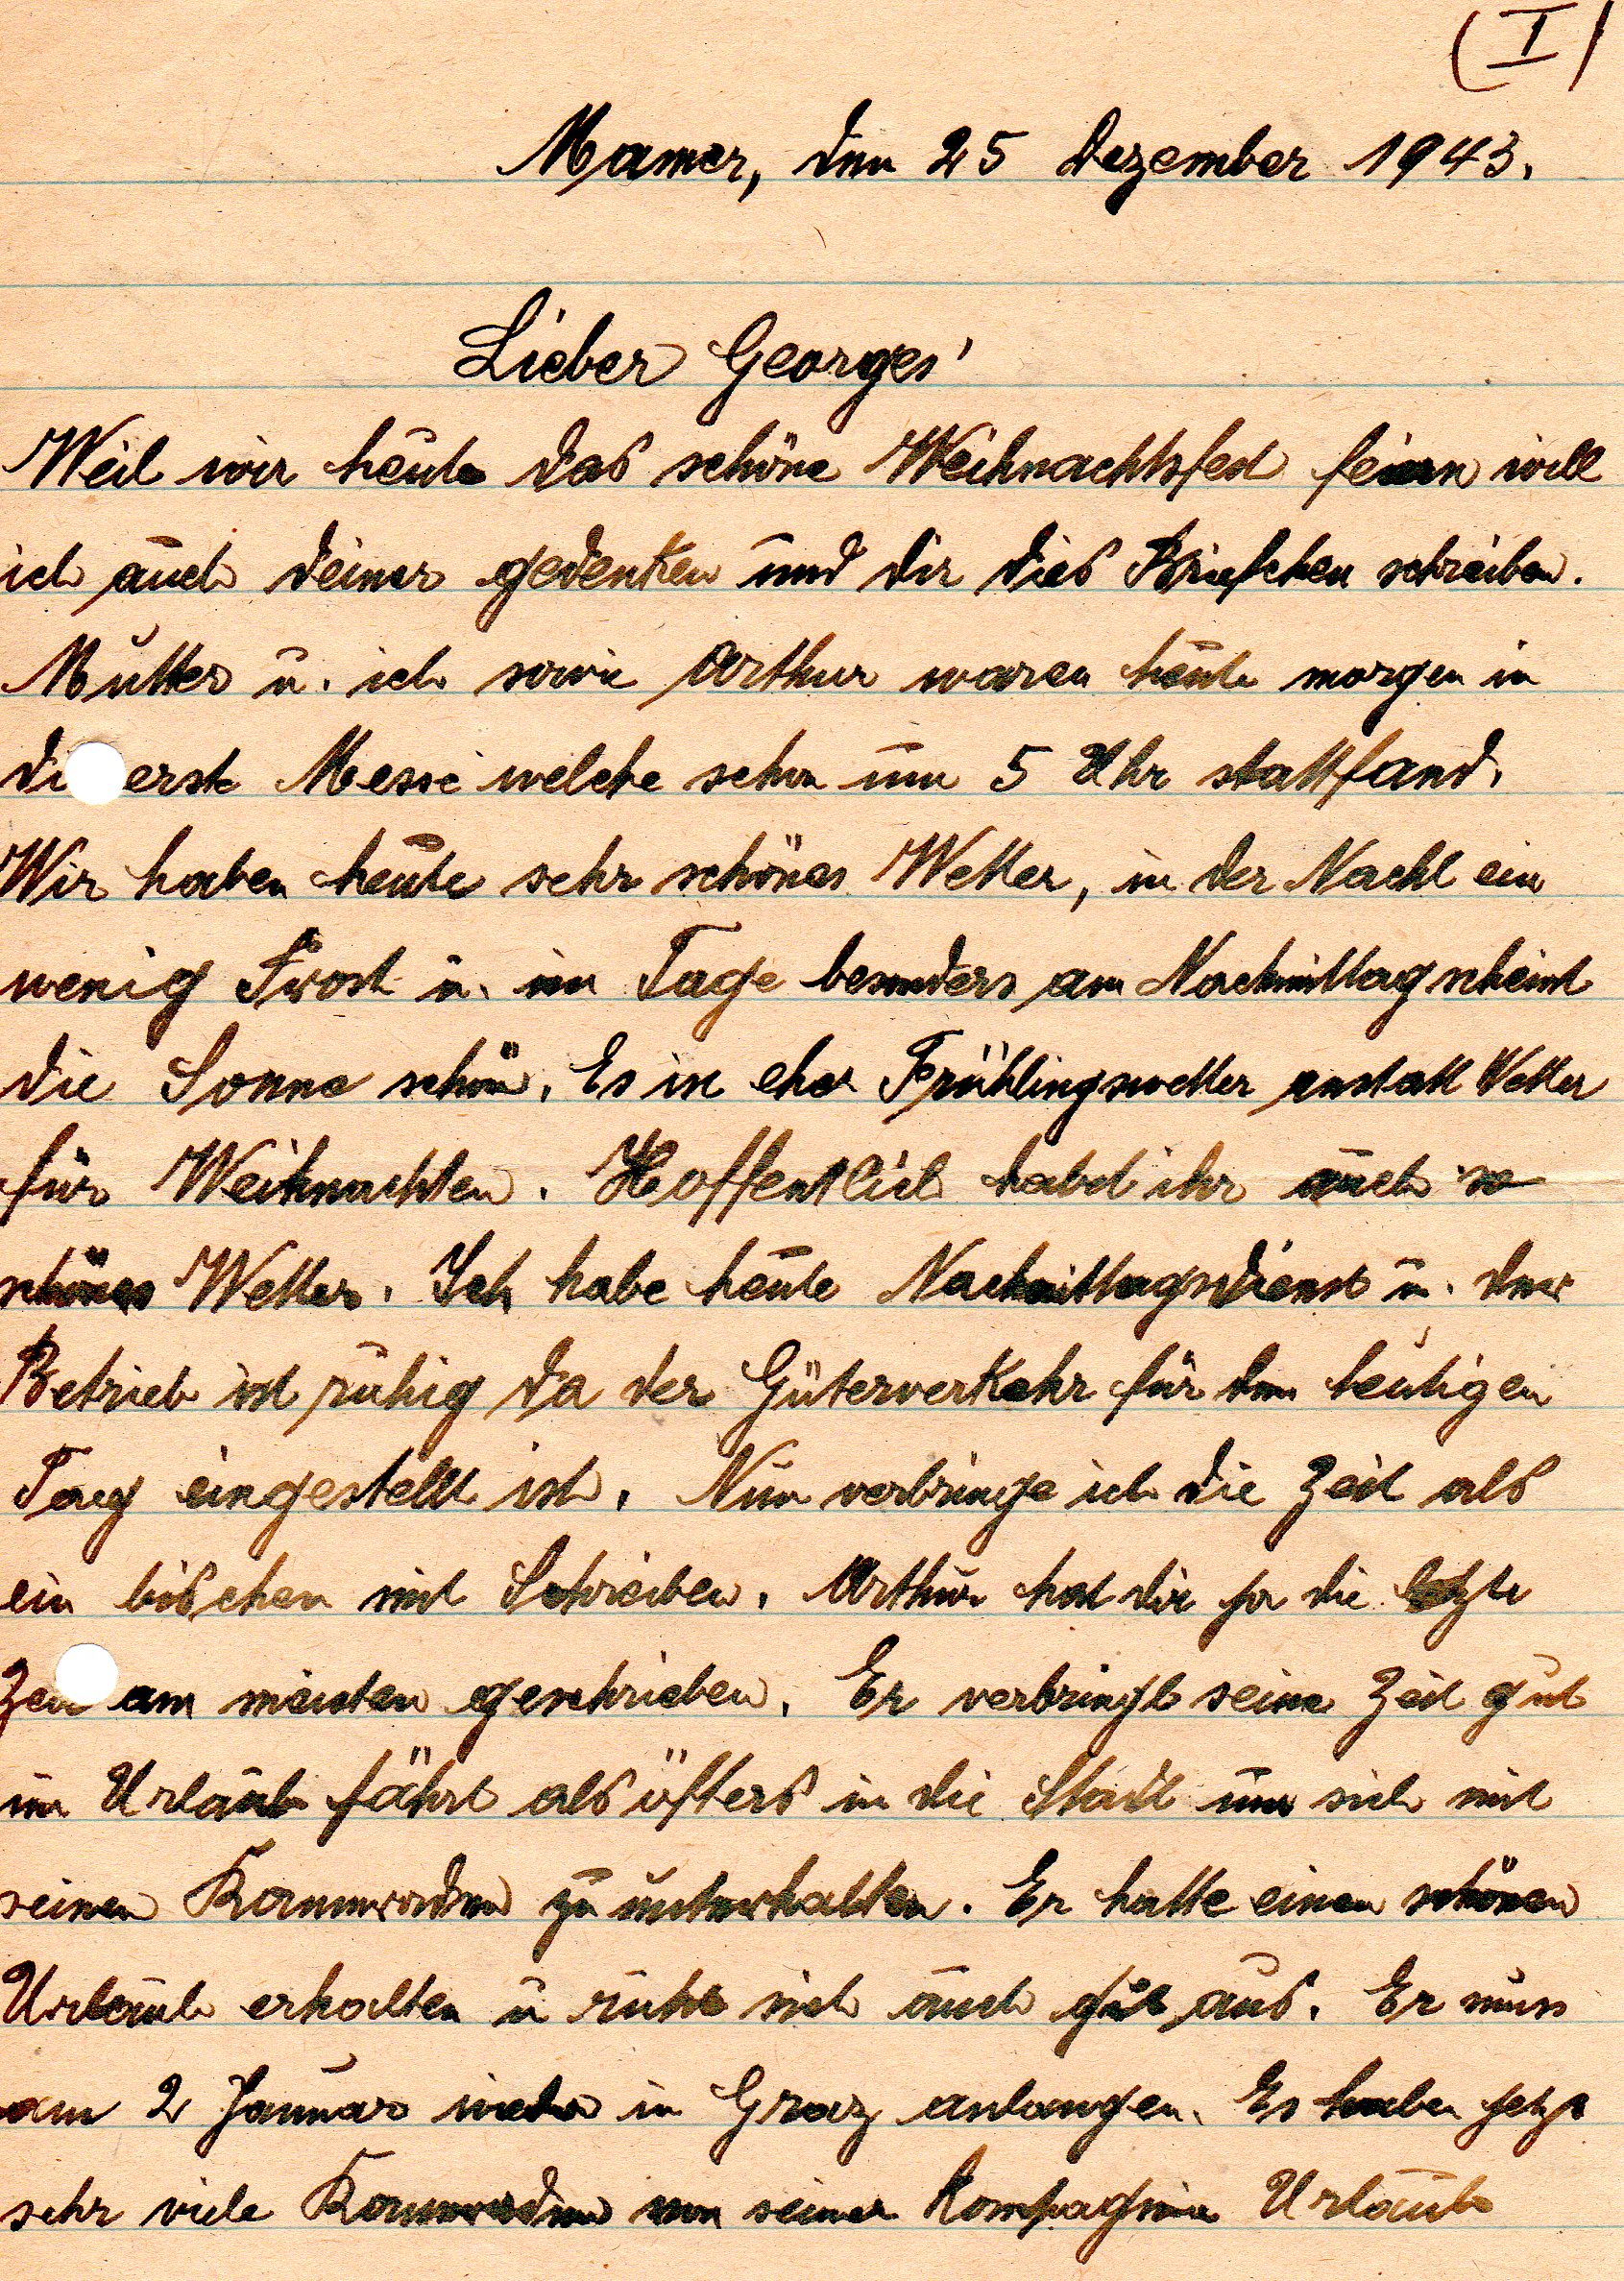 (I)
Mamer, den 25 Dezember 1943.
Lieber Georges'
Weil wir heute das schöne Weihnachtsfest feiern will
ich auch deiner gedenken und dir dies Briefchen schreiben.
Mutter u. ich sowie Arthur waren heute morgen in
di erste Messe welche schon um 5 Uhr stattfand.
Wir haben heute sehr schönes Wetter, in der Nacht ein
wenig Frost u. im Tage besonders am Nachmittag scheint
die Sonne schön. Es ist eher Frühlingswetter anstatt Wetter
für Weihnachten. Hoffentlich habet ihr auch so
schönes Wetter. Ich habe heute Nachmittagsdienst u. der
Betrieb ist ruhig da der Güterverkehr für den heutigen
Tag eingestellt ist. Nun verbringe ich die Zeit als
ein bischen mit Schreiben. Arthur hat dir ja die letzte
Zeit am meisten geschrieben. Er verbringt seine Zeit gut
im Urlaub fährt als öfters in die Stadt um sich mit
seinen Kameraden zu unterhalten. Er hatte einen schönen
Urlaub erhalten u ruht sich auch gut aus. Er muss
am 2 Januar wieder in Graz anlangen. Es haben jetzt
sehr viele Kameraden von seiner Kompagnie Urlaub